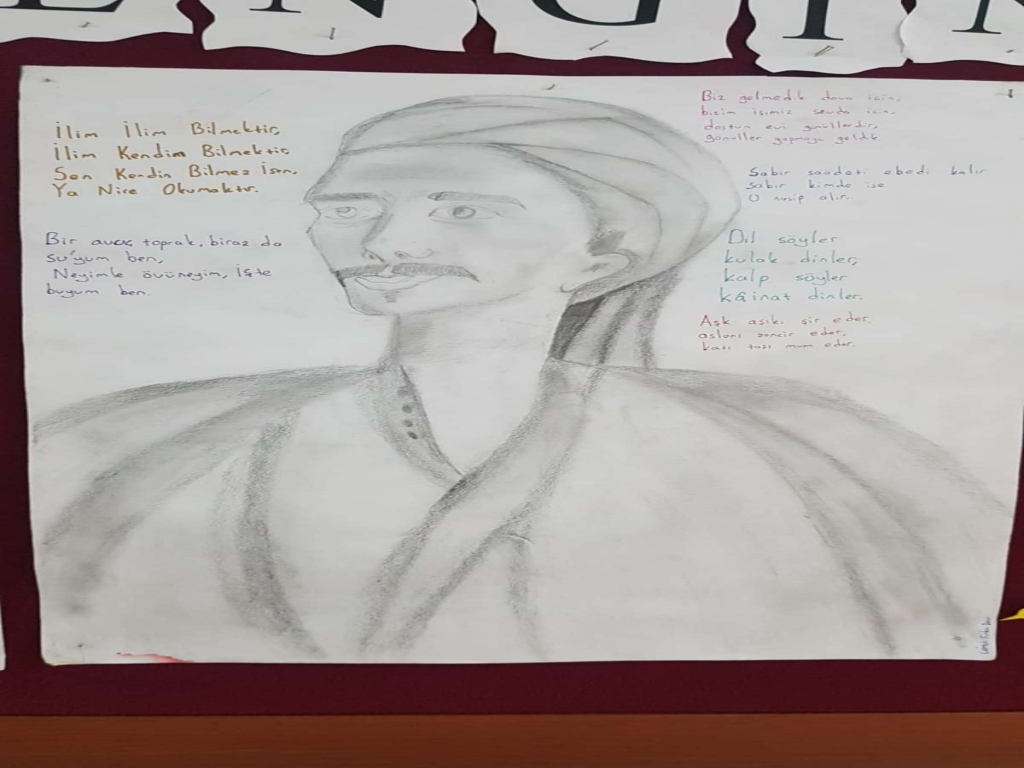 ENGİN
İlim İlim Bilmektir,
İlim Kendim Bilmektir,
Sen Kendin Bilmez İsen,
Ya Nice Okumaktır.
Bir avuç toprak, biraz da
su'yum ben,
Neyimle övüneyim, İşte
buyum ben.
Biz gelmedik dava için,
bizim işimiz sevda için,
dostun evi gönüllerdir,
gönüller yapmaya geldik
Sabır saadeti ebedi kalır
sabır kimde ise
O nasip alır.
Dil söyler
kulak dinler,
kalp söyler
kâinat dinler.
Aşk aşıkı şir eder,
aslanı zencir eder,
katı taşı mum eder.